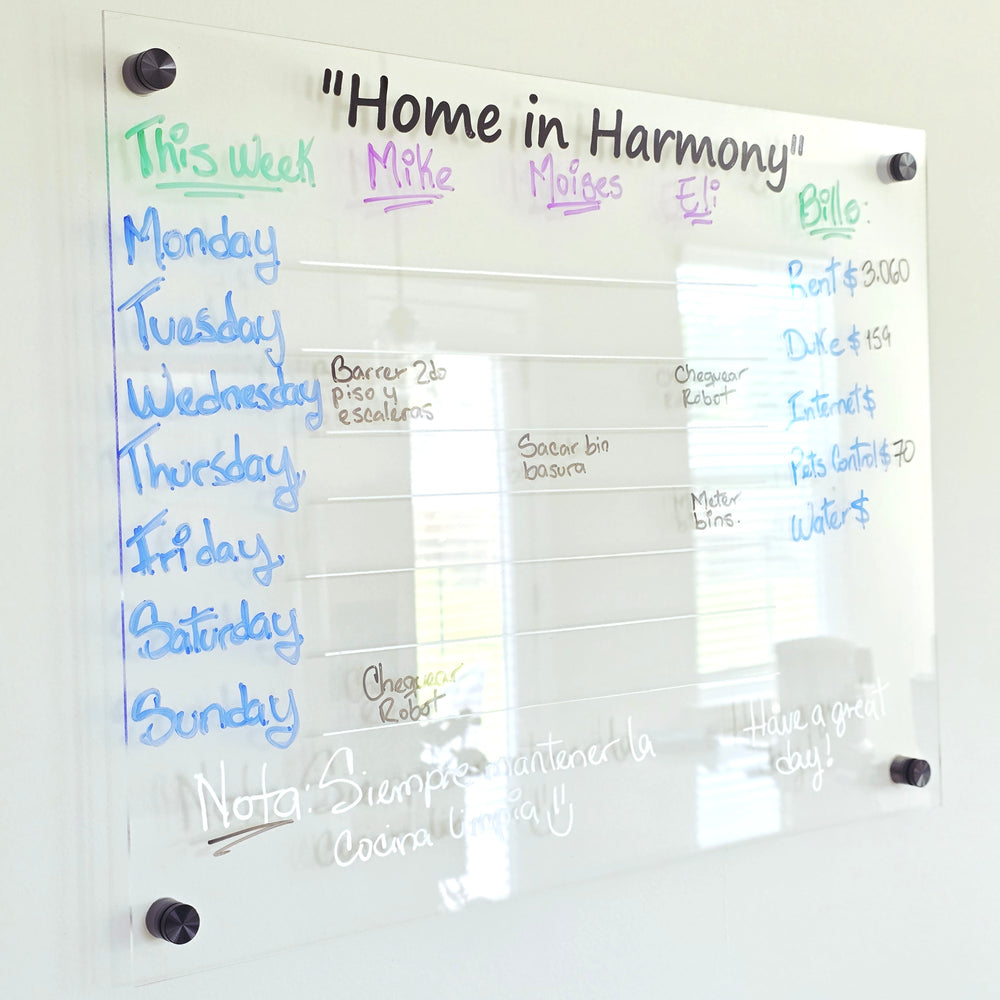 "Home in Harmony"
This Week Mike Moises Eli Bills:
Monday
Rent $ 3.060
Tuesday
Duke $ 159
Wednesday
Barrer 2do
piso y
escaleras
Chequear
Robot
Internet $
Thursday
Sacar bin
basura
Pets Control $ 70
Friday
Meter
bins.
Water $
Saturday
Sunday
Chequear
Robot
Nota: Siempre mantener la
Cocina limpia
Have a great
day!